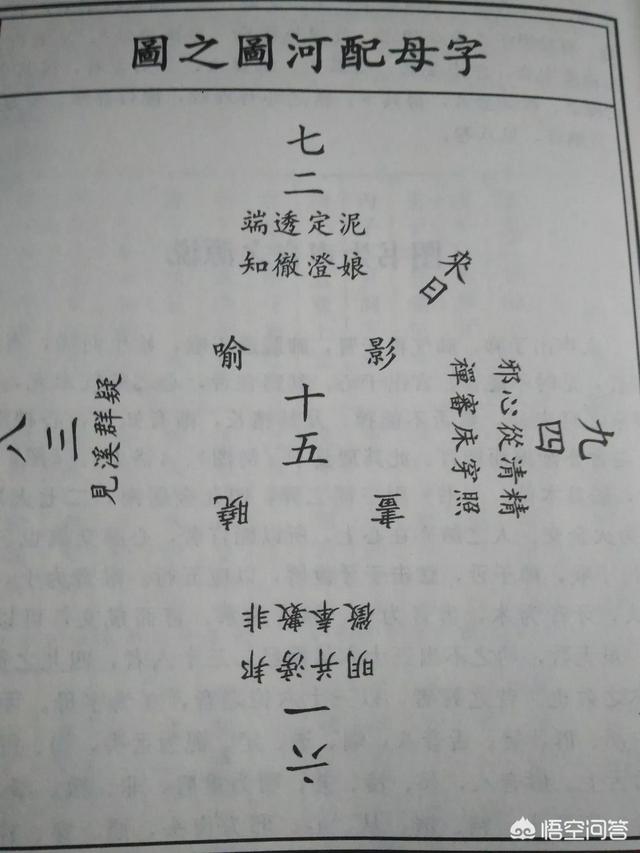 字母配河圖之圖
七
二
端透定泥
知徹澄娘
來日
喻 影
十
五
曉
九
四
精清從心邪
照穿床審禪
八
三
見溪群疑
非敷奉微
邦滂並明
一
六
悟空问答